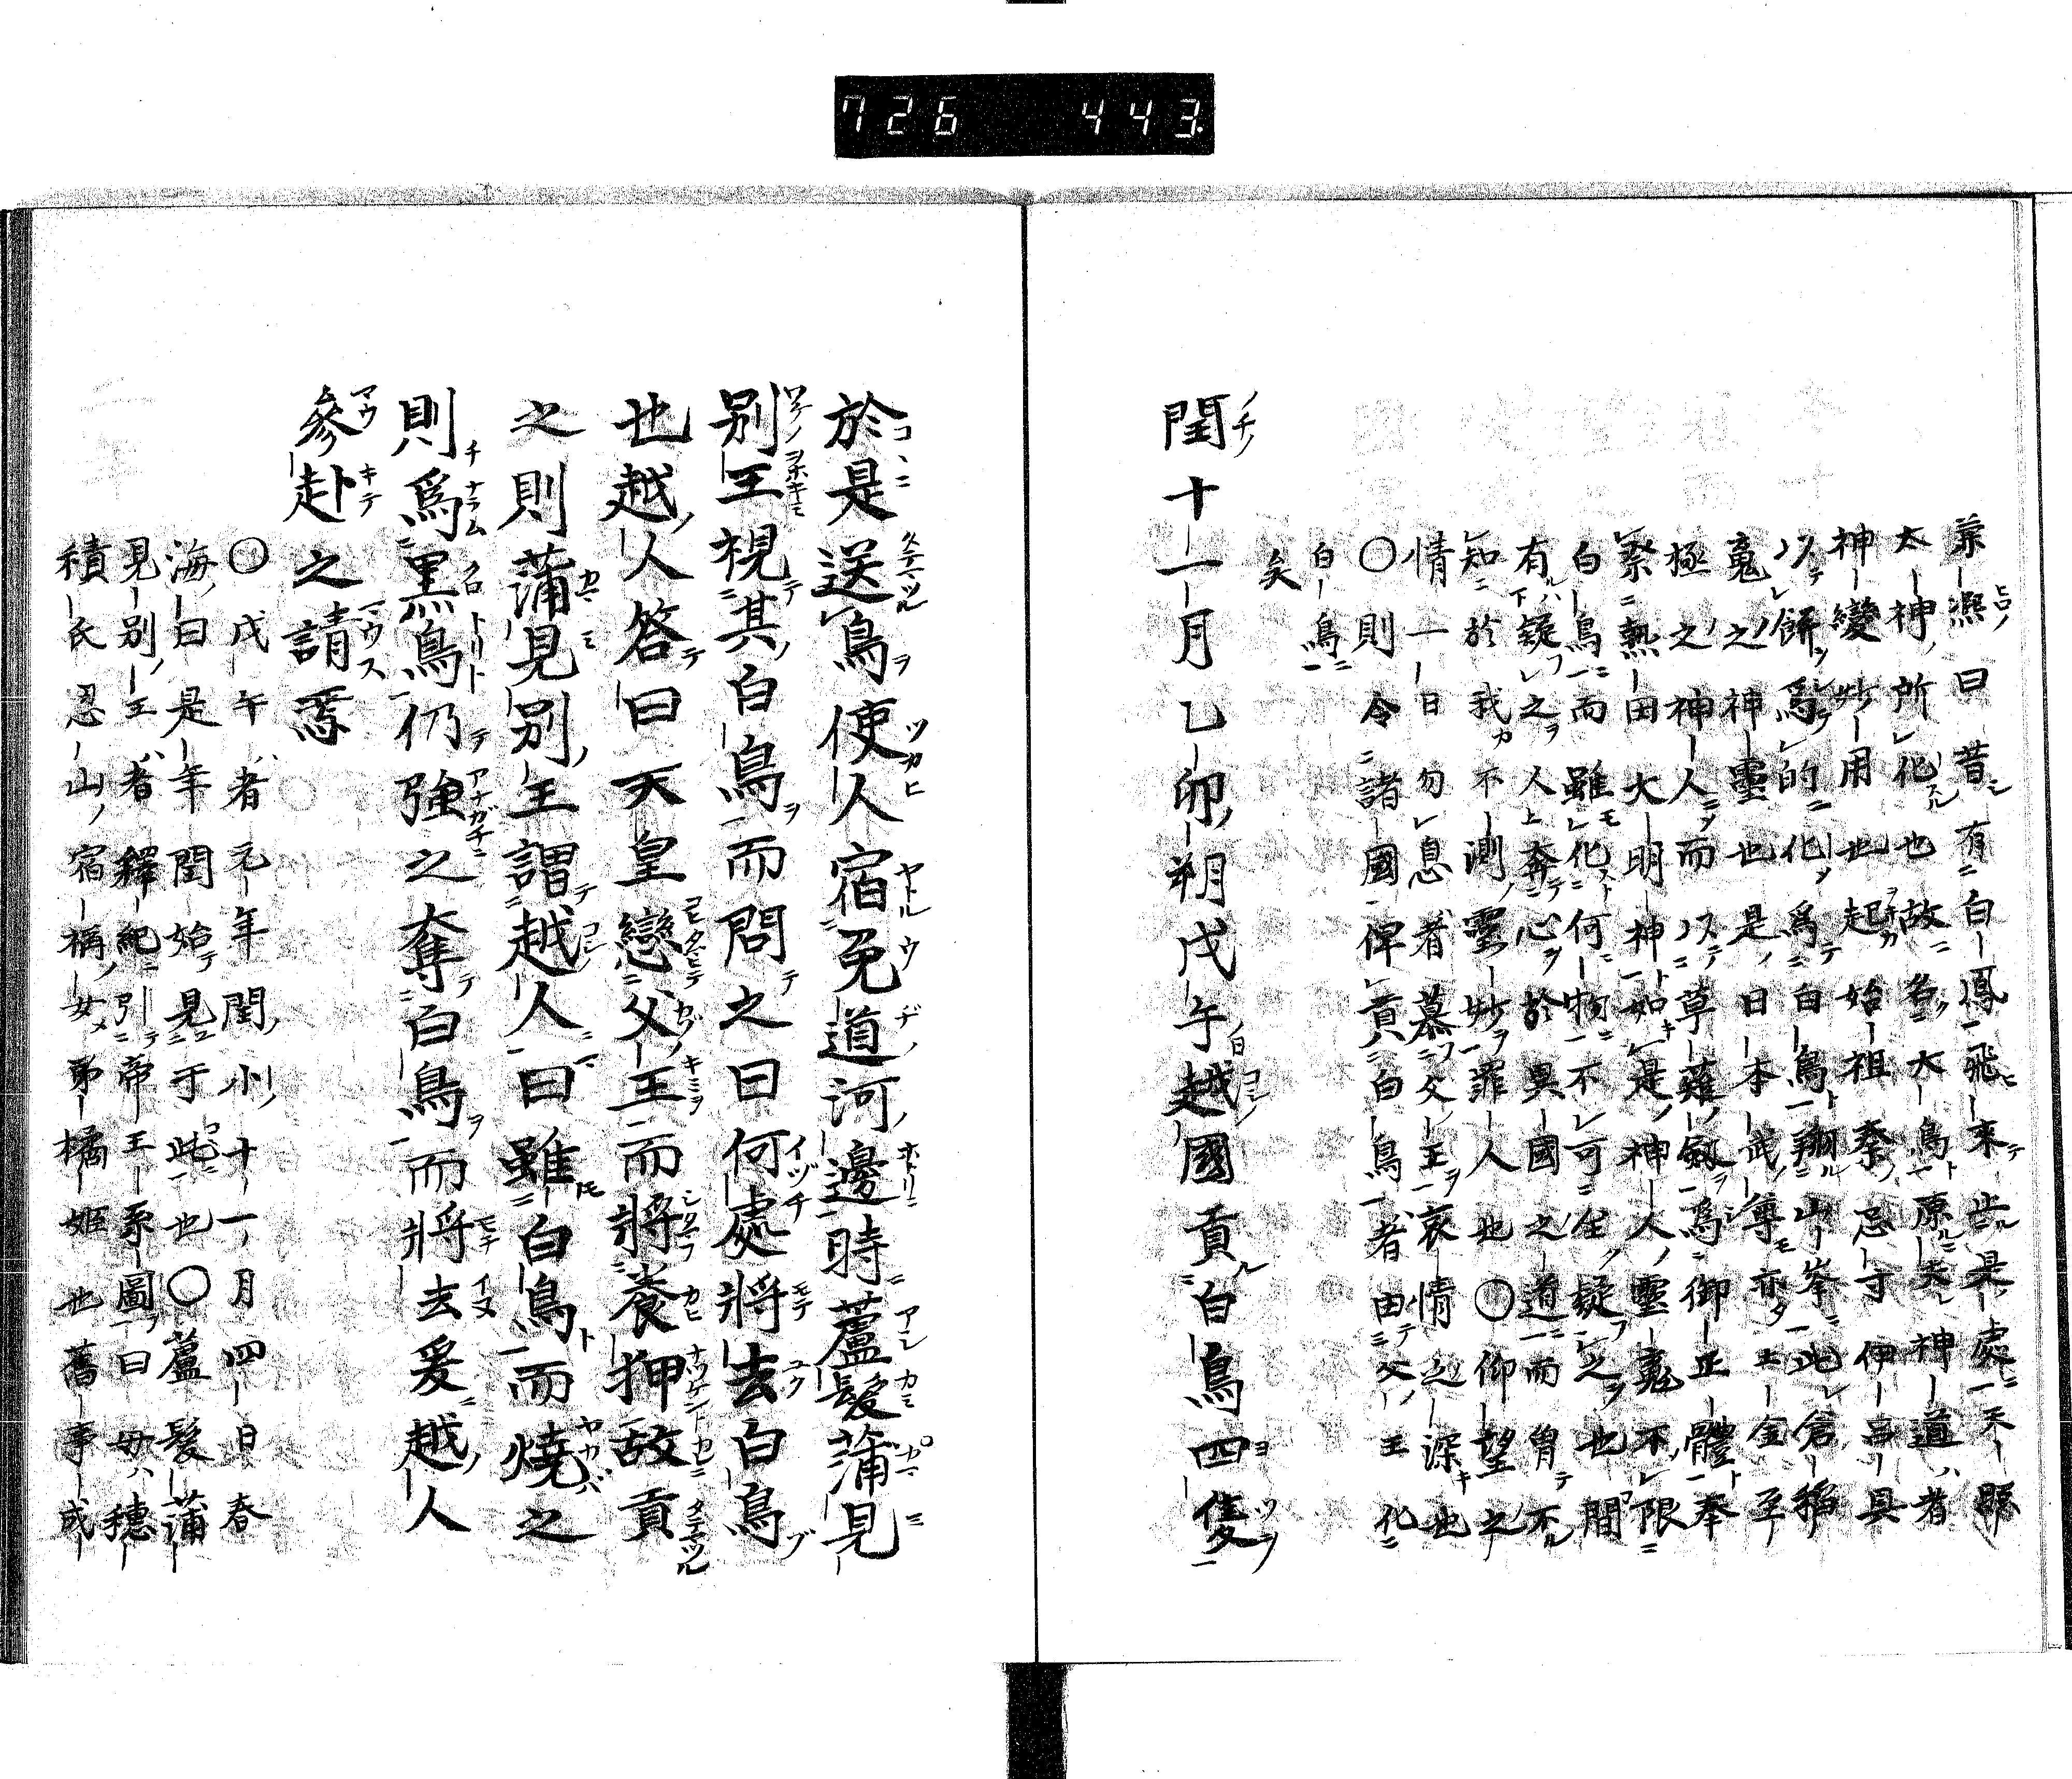 726 443
兼凞曰昔有白鳳飛來告是處天縣
太神所化也故名大鳥原夫神道者
神變妙用也起始祖秦忌寸伊呂具
以餅爲的化爲白鳥翔山峯此倉稻
䰟之神靈也是日本武尊亦土金至
極之神人而以草薙劔爲御正體奉
祭熱田大明神如是神人靈䰟不限
白鳥而雖化何物不可在疑之也間
有疑之人奔心於異國之道而曽不
知於我不測靈妙罪人也〇仰望之
情一日勿息者慕父王哀情之深也
〇則令諸國俾貢白鳥者由父王化
白鳥
矣
閏十一月乙卯朔戊午越國貢白鳥四隻
於是送鳥使人宿菟道河邊時蘆髮蒲見
別王視其白鳥而問之曰何處將去白鳥
也越人答曰天皇戀父王而將養狎故貢
之則蒲見別王謂越人曰雖白鳥而燒之
則爲黒鳥仍強之奪白鳥而將去爰越人
參赴之請焉
〇戊午者元年閏小十一月四日春
海曰是年閏始見于此也〇蘆髮蒲
見別王者釋紀引帝王系圖曰母穗
積氏忍山宿禰女弟橘姬也舊事成